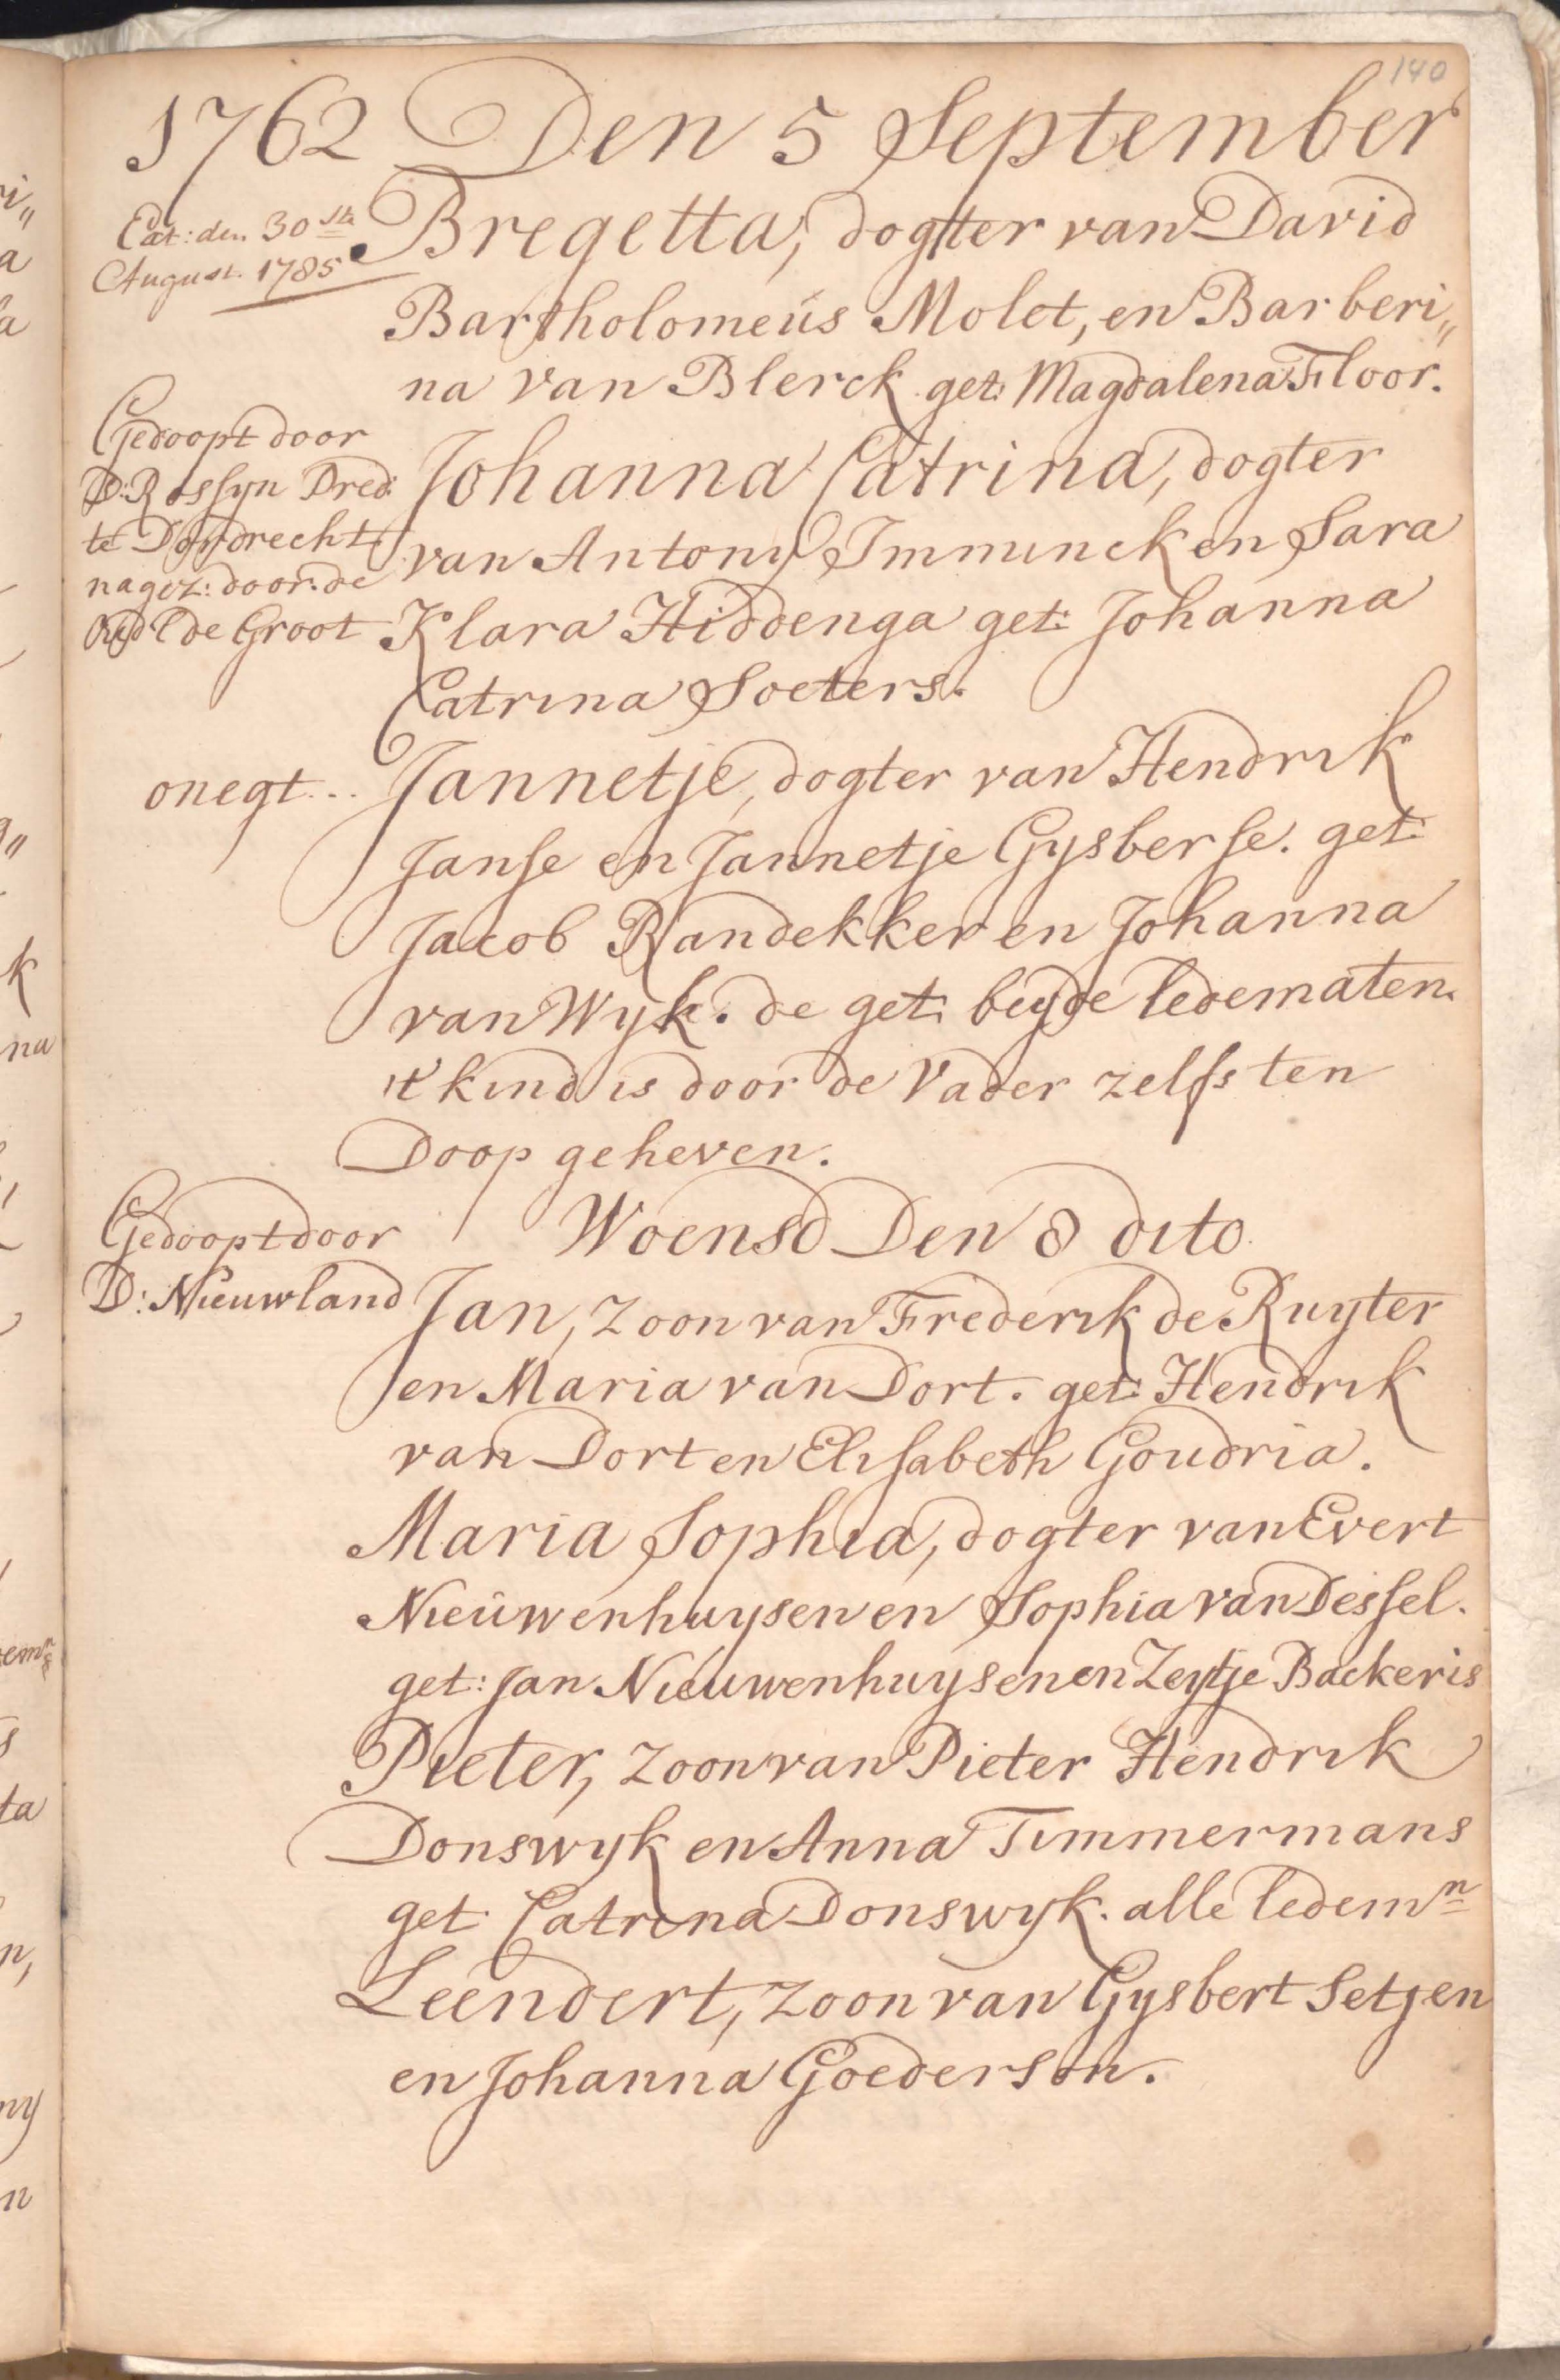 140
1762 Den 5 September
Ext: den 30ste
August. 1785
Bregetta, dogtter van David
Bartholomeús Molet, en Barberi„
na van Blerck get: Magdalena Floor.
Gedoopt door
D: Rossyn Pred:
te Dordrecht
nagez: door de
Oud l de Groot
Johanna Catrina, dogter
van Antony Imminck en Sara
Klara Hiddenga get: Johanna
Catrina Soeters.
onegt... Jannetje, dogter van Hendrik
Janse en Jannetje Gysberse. get:
Jacob Randekker en Johanna
van Wyk. de get: beyde ledematen.
't kind is door de Vader zelfs ten
Doop geheven.
Woensd Den 8 dito.
Gedoopt door
D: Nieuwland
Jan, zoon van Frederik de Ruyter
en Maria van Dort. get: Hendrik
van Dort en Elisabeth Goudria.
Maria Sophia, dogter van Evert
Nieúwenhuysen en Sophia van Dessel.
get: Jan Nieuwenhuysen en Zeytje Backeris
Pieter, zoon van Pieter Hendrik
Donswyk en Anna Timmermans
get: Catrina Donswyk. alle ledemn
Leendert, zoon van Gysbert Setjen
en Johanna Goederson.